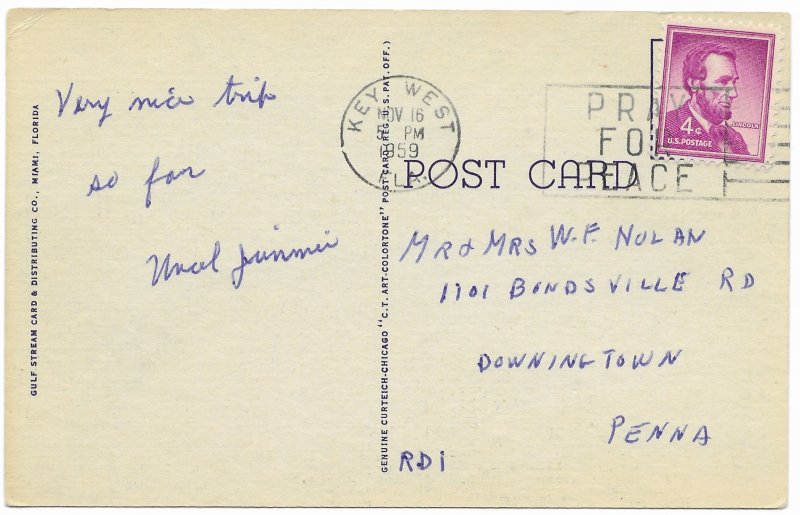 GULF STREAM CARD & DISTRIBUTING CO., MIAMI, FLORIDA
Very nice trip
so far
Uncel Jimmie
GENUINE CURTEICH-CHICAGO "C.T. ART-COLORTONE" POST CARD (REG. U.S. PAT. OFF.)
KEY WEST
NOV 16
PM
1959
FLA.
PRAY
FOR
PEACE
4¢
LINCOLN
U.S. POSTAGE
POST CARD
MR & MRS W.F. NOLAN
1701 BONDSVILLE RD
DOWNINGTOWN
PENNA
RD1